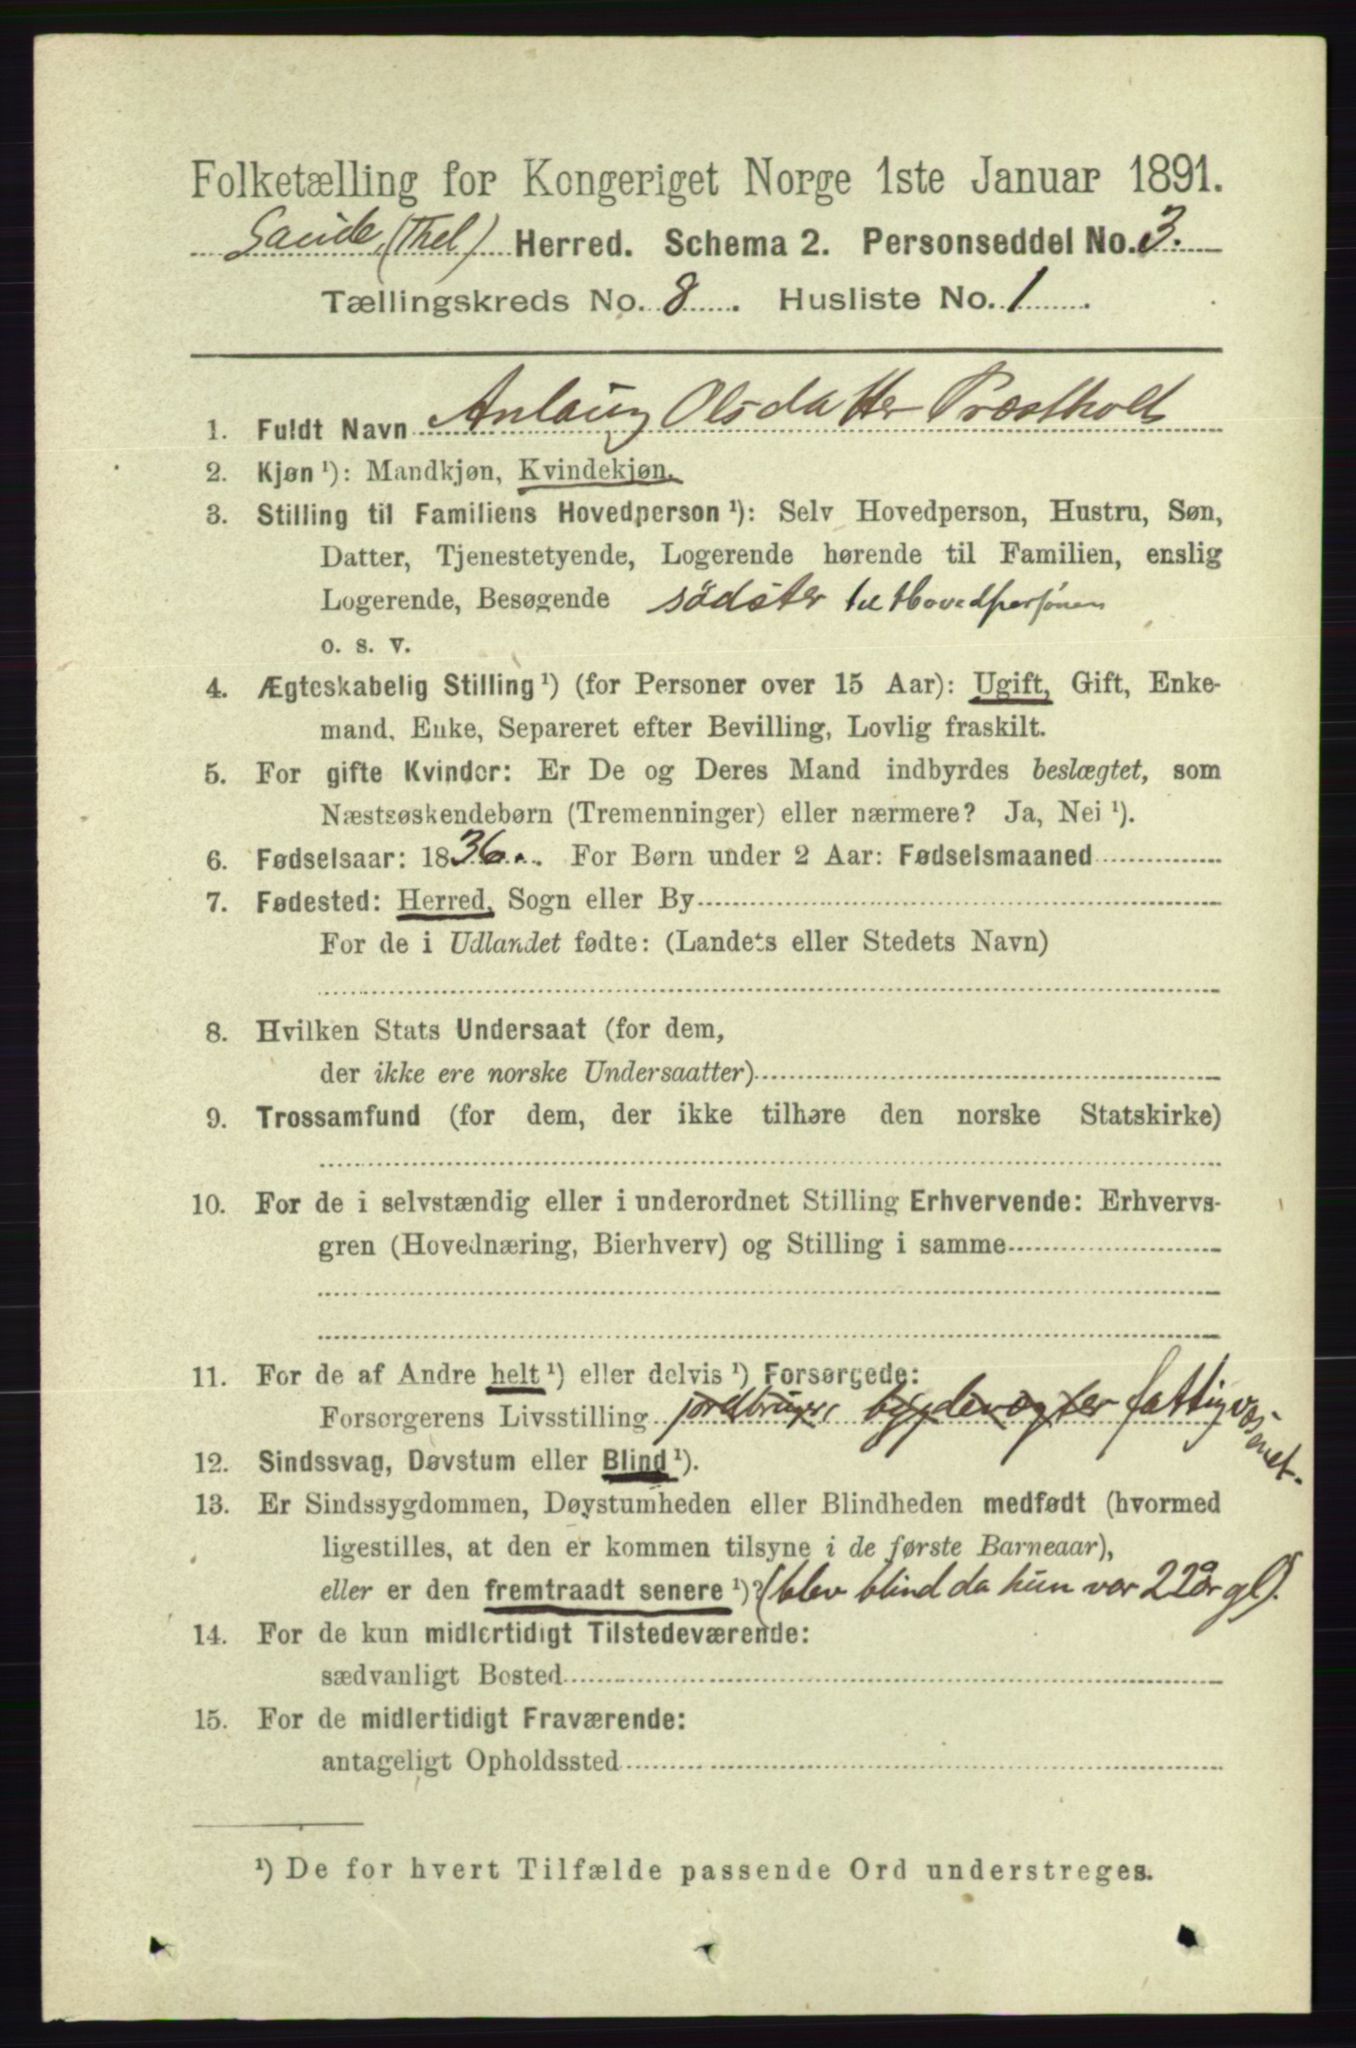 Folketælling for Kongeriget Norge 1ste Januar 1891.
Saude (Thel) Herred. Schema 2. Personseddel No. 3.
Tællingskreds No. 8. Husliste No. 1
1. Fuldt Navn Anlaug Olsdatter Præstholt
2. Kjøn ¹): Mandkjøn, Kvindekjøn.
3. Stilling til Familiens Hovedperson ¹): Selv Hovedperson, Hustru, Søn,
Datter, Tjenestetyende, Logerende hørende til Familien, enslig
Logerende, Besøgende södster til Hovedpersonen
o. s. v.
4. Ægteskabelig Stilling ¹) (for Personer over 15 Aar): Ugift, Gift, Enke-
mand, Enke, Separeret efter Bevilling, Lovlig fraskilt.
5. For gifte Kvinder: Er De og Deres Mand indbyrdes beslægtet, som
Næstsøskendebørn (Tremenninger) eller nærmere? Ja, Nei ¹).
6. Fødselsaar: 1836. For Børn under 2 Aar: Fødselsmaaned
7. Fødested: Herred, Sogn eller By
For de i Udlandet fødte: (Landets eller Stedets Navn)
8. Hvilken Stats Undersaat (for dem,
der ikke ere norske Undersaatter)
9. Trossamfund (for dem, der ikke tilhøre den norske Statskirke)
10. For de i selvstændig eller i underordnet Stilling Erhvervende: Erhvervs-
gren (Hovednæring, Bierhverv) og Stilling i samme
11. For de af Andre helt ¹) eller delvis ¹) Forsørgede:
Forsørgerens Livsstilling fattigvæsenet.
12. Sindssvag, Døvstum eller Blind ¹).
13. Er Sindssygdommen, Døvstumheden eller Blindheden medfødt (hvormed
ligestilles, at den er kommen tilsyne i de første Barneaar),
eller er den fremtraadt senere ¹)? (blev blind da hun var 22 år gl).
14. For de kun midlertidigt Tilstedeværende:
sædvanligt Bosted
15. For de midlertidigt Fraværende:
antageligt Opholdssted
¹) De for hvert Tilfælde passende Ord understreges.